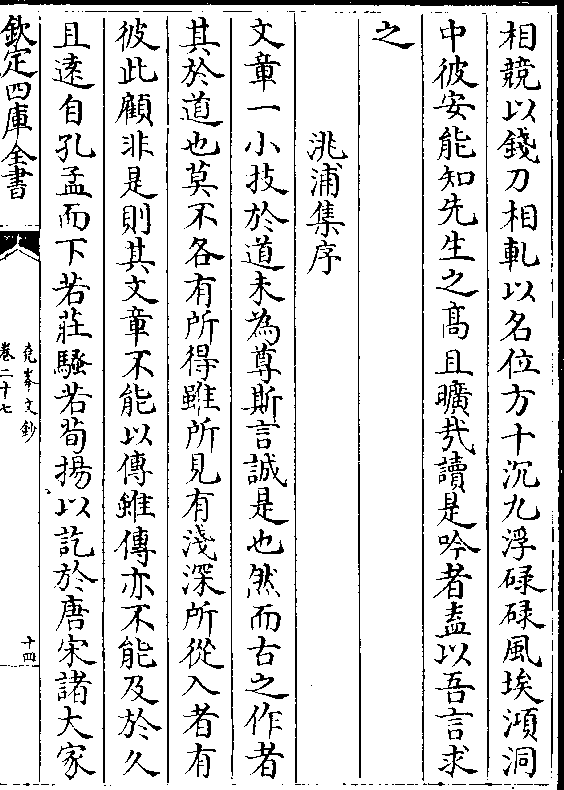 相競以錢刀相軋以名位方十沉九浮碌碌風埃澒洞
中彼安能知先生之髙且曠㢤讀是吟者盍以吾言求
之
洮浦集序
文章一小技於道未為尊斯言誠是也然而古之作者
其於道也莫不各有所得雖所見有淺深所從入者有
彼此顧非是則其文章不能以傳雖傳亦不能及於久
且遠自孔孟而下若莊騷若荀揚以訖於唐宋諸大家
欽定四庫全書
堯峯文鈔
卷二十七
十四